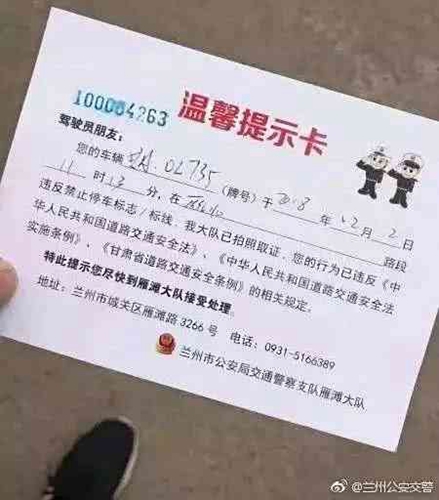 100084263
温馨提示卡
驾驶员朋友：
您的车辆 OL735 (牌号) 于 2018 年 12 月 2 日
11 时 13 分，在 路段
违反禁止停车标志/标线，我大队已拍照取证，您的行为已违反《中
华人民共和国道路交通安全法》、《中华人民共和国道路交通安全法
实施条例》、《甘肃省道路交通安全条例》的相关规定。
特此提示您尽快到雁滩大队接受处理。
地址：兰州市城关区雁滩路3266号 电话：0931-5166389
兰州市公安局交通警察支队雁滩大队
@兰州公安交警